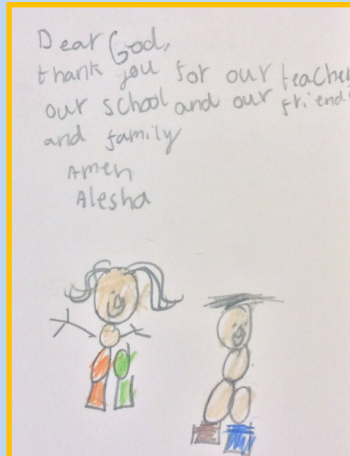 Dear God,
thank you for our teacher
our school and our friends
and family
Amen
Alesha